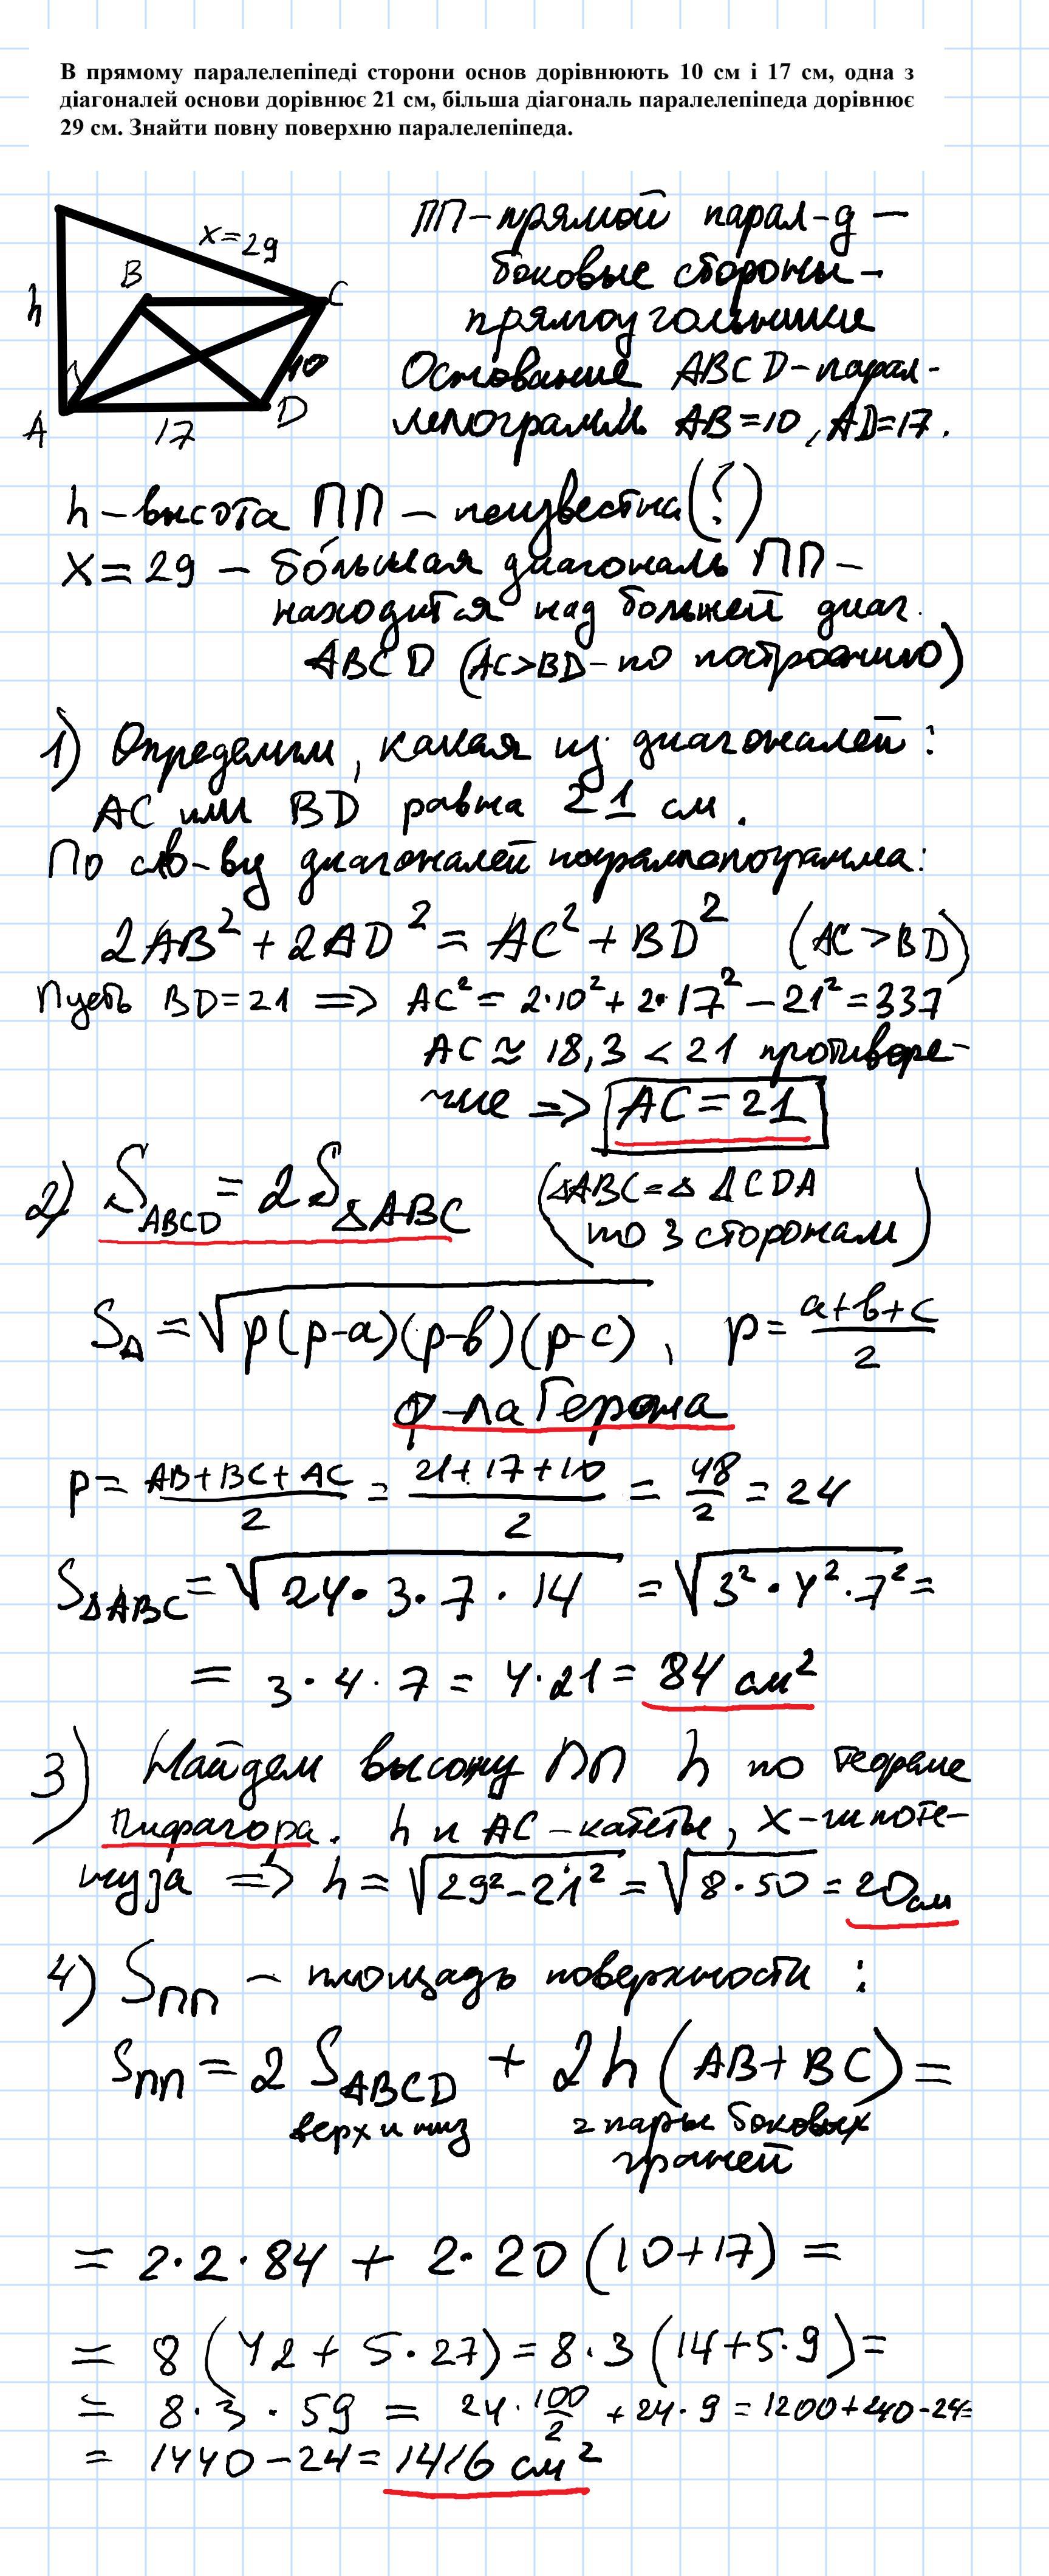 В прямому паралелепіпеді сторони основ дорівнюють 10 см і 17 см, одна з
діагоналей основи дорівнює 21 см, більша діагональ паралелепіпеда дорівнює
29 см. Знайти повну поверхню паралелепіпеда.
x=29
B
C
h
10
A
17
D
ПП - прямой парал-д -
боковые стороны -
прямоугольники
Основание ABCD - парал-
лелограмм. AB=10, AD=17.
h - высота ПП - неизвестна (?)
x = 29 - бо́льшая диагональ ПП -
находится над большей диаг.
ABCD (AC>BD - по построению)
1) Определим, какая из диагоналей:
AC или BD равна 21 см.
По св-ву диагоналей параллелограмма:
2AB² + 2AD² = AC² + BD² (AC > BD)
Пусть BD=21 => AC² = 2·10² + 2·17² - 21² = 337
AC ≈ 18,3 < 21 противоре-
чие => AC = 21
2) S_ABCD = 2S_△ABC (△ABC = △ ΔCDA
по 3 сторонам)
S_△ = √(p(p-a)(p-b)(p-c)), p = (a+b+c)/2
ф-ла Герона
p = (AB+BC+AC)/2 = (21+17+10)/2 = 48/2 = 24
S_△ABC = √(24·3·7·14) = √(3²·4²·7²) =
= 3·4·7 = 4·21 = 84 см²
3) Найдем высоту ПП h по теореме
Пифагора. h и AC - катеты, x - гипоте-
нуза => h = √(29²-21²) = √(8·50) = 20 см
4) S_ПП - площадь поверхности :
S_ПП = 2 S_ABCD + 2h (AB+BC) =
верх и низ 2 пары боковых
граней
= 2·2·84 + 2·20 (10+17) =
= 8 (42 + 5·27) = 8·3 (14+5·9) =
= 8·3·59 = 24·100/2 + 24·9 = 1200+240-24=
= 1440 - 24 = 1416 см²